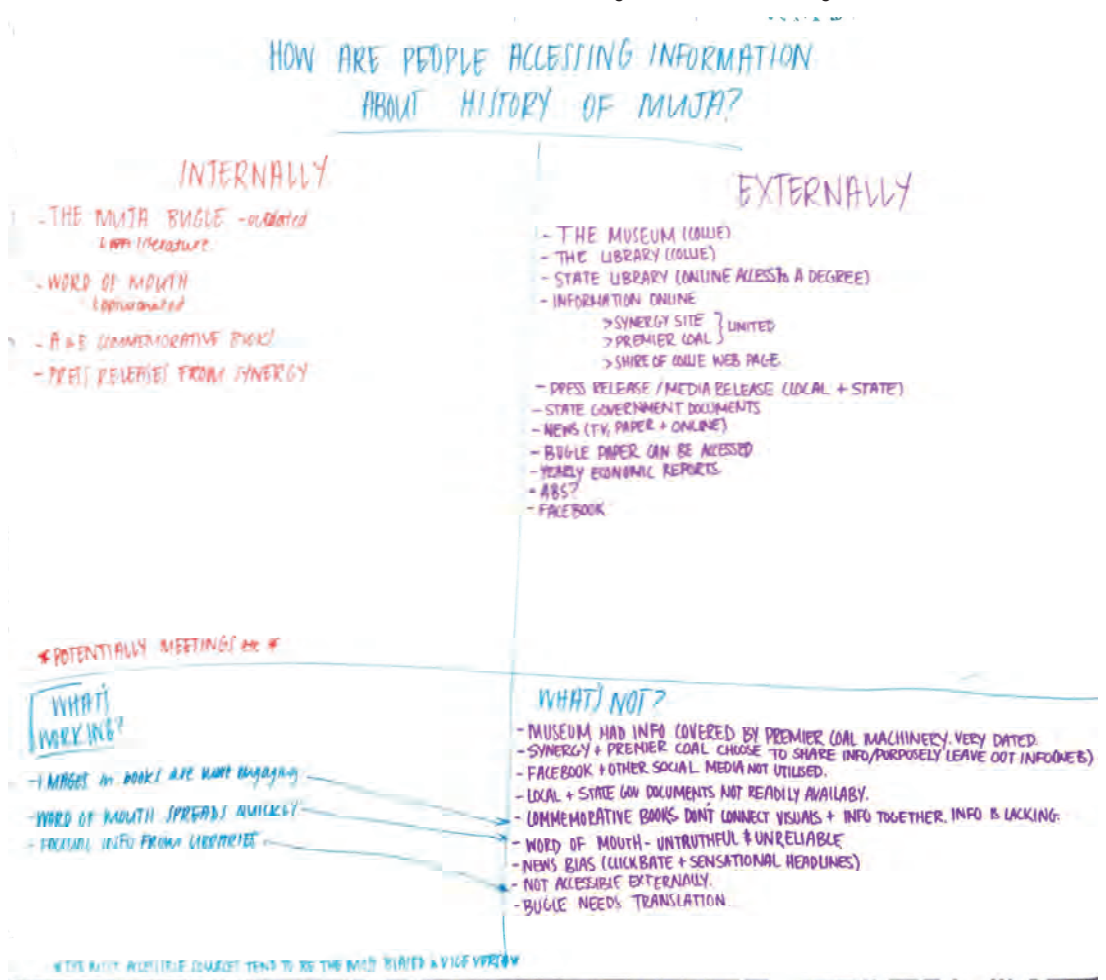 HOW ARE PEOPLE ACCESSING INFORMATION
ABOUT HISTORY OF MUJA?
INTERNALLY
- THE MUJA BUGLE - outdated
literature
- WORD OF MOUTH
- A & B COMMEMORATIVE BOOKS
- PRESS RELEASES FROM SYNERGY
* POTENTIALLY MEETINGS etc *
EXTERNALLY
- THE MUSEUM (COLLIE)
- THE LIBRARY (COLLIE)
- STATE LIBRARY (ONLINE ACCESS to A DEGREE)
- INFORMATION ONLINE
> SYNERGY SITE } UNITED
> PREMIER COAL
> SHIRE OF COLLIE WEB PAGE
- PRESS RELEASE / MEDIA RELEASE (LOCAL + STATE)
- STATE GOVERNMENT DOCUMENTS
- NEWS (TV, PAPER + ONLINE)
- BUGLE PAPER CAN BE ACCESSED
- YEARLY ECONOMIC REPORTS
- ABS?
- FACEBOOK
WHAT'S
WORKING?
- IMAGES in books are engaging
- WORD OF MOUTH SPREADS QUICKLY
- FACTUAL INFO FROM LIBRARIES
WHAT'S NOT?
- MUSEUM HAD INFO COVERED BY PREMIER COAL MACHINERY. VERY DATED.
- SYNERGY + PREMIER COAL CHOOSE TO SHARE INFO/PURPOSELY LEAVE OUT INFO (WEB)
- FACEBOOK + OTHER SOCIAL MEDIA NOT UTILISED.
- LOCAL + STATE GOV DOCUMENTS NOT READILY AVAILABY.
- COMMEMORATIVE BOOKS DON'T CONNECT VISUALS + INFO TOGETHER. INFO IS LACKING.
- WORD OF MOUTH - UNTRUTHFUL & UNRELIABLE
- NEWS BIAS (CLICKBATE + SENSATIONAL HEADLINES)
- NOT ACCESSIBLE EXTERNALLY.
- BUGLE NEEDS TRANSLATION
* THE MOST ACCESSIBLE SOURCES TEND TO BE THE MOST BIASED & VICE VERSA *